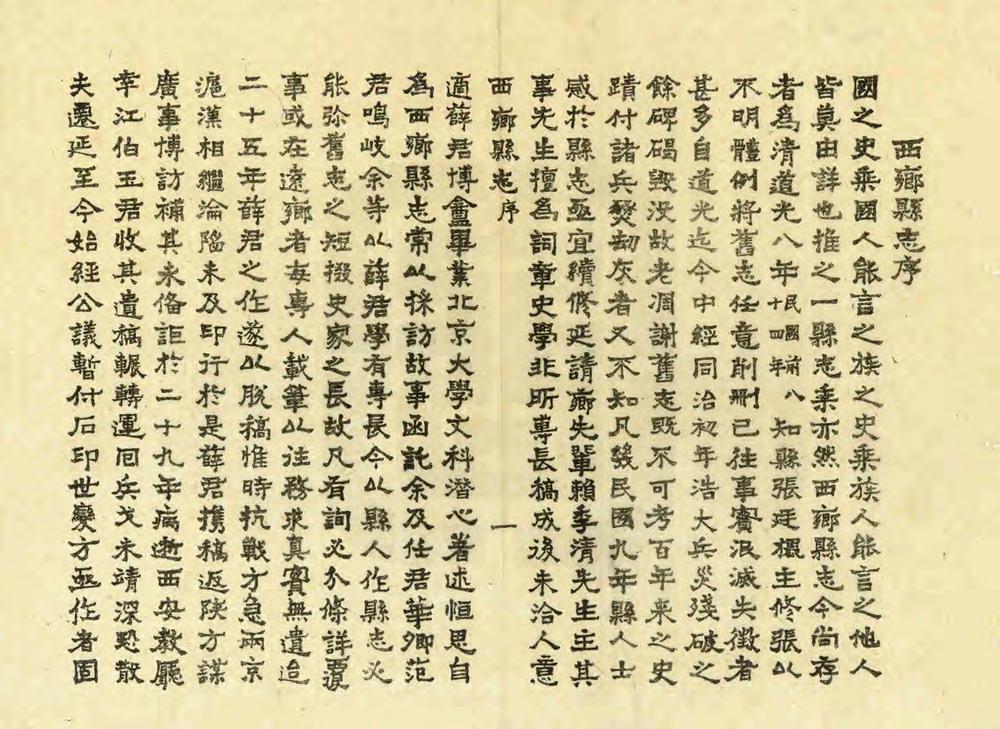 西鄉縣志序
國之史乘國人能言之族之史乘族人能言之他人
皆莫由詳也推之一縣志乘亦然西鄉縣志今尚存
者爲清道光八年民國前八十四年知縣張廷槐主修張以
不明體例將舊志任意削刪已往事實泯滅失徵者
甚多自道光迄今中經同治初年浩大兵災殘破之
餘碑碣毀没故老凋謝舊志既不可考百年來之史
蹟付諸兵燹劫灰者又不知凡幾民國九年縣人士
感於縣志亟宜續修延請鄉先輩賴季清先生主其
事先生擅爲詞章史學非所專長稿成後未洽人意
西鄉縣志序
一
適薛君博盦畢業北京大學文科潛心著述恒思自
爲西鄉縣志常以採訪故事函託余及任君華卿范
君鳴岐余等以薛君學有專長今以縣人作縣志必
能弥舊志之短掇史家之長故凡有詢必分條詳覆
事或在遠鄉者每專人載筆以往務求真實無遺迨
二十五年薛君之作遂以脫稿惟時抗戰方急兩京
滬漢相繼淪陷未及印行於是薛君攜稿返陝方謀
廣事博訪補其未備詎於二十九年病逝西安教廳
幸江伯玉君收其遺稿輾轉運回兵戈未靖深恐散
失遷延至今始經公議暫付石印世變方亟作者固